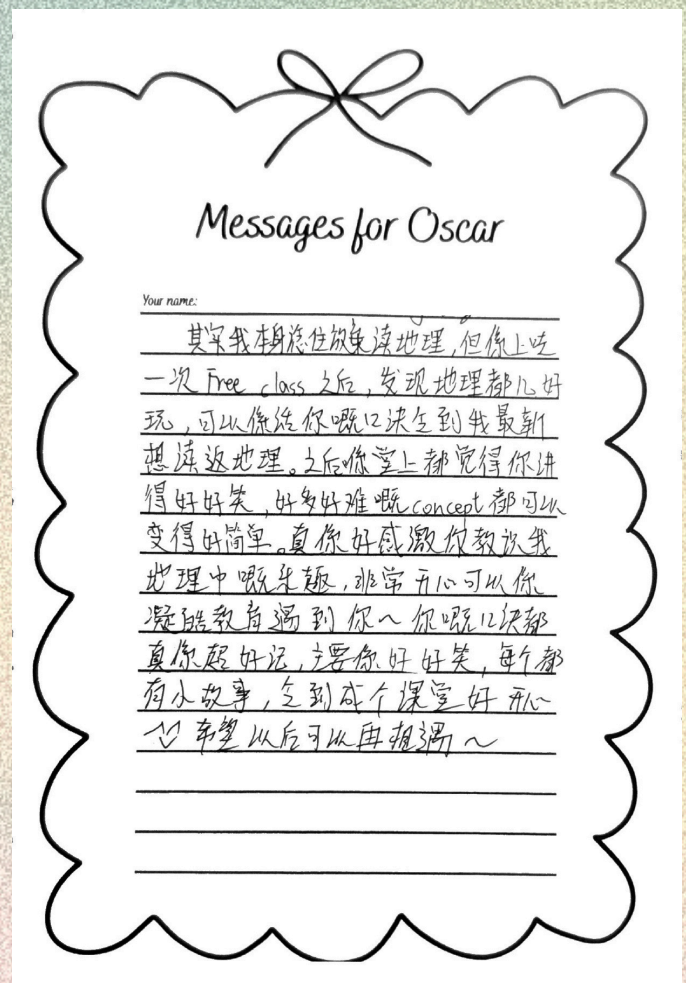 Messages for Oscar
Your name:
其实我本身諗住放弃读地理,但係上咗
一次 Free class 之后,发现地理都几好
玩,可以係话你嘅口诀令到我最新
想读返地理。之后喺堂上都觉得你讲
得好好笑,好多好难嘅concept都可以
变得好简单。真係好感激你教识我
地理中嘅乐趣,非常开心可以係
凝皓教育遇到你~你嘅口诀都
真係超好记,主要係好好笑,每个都
有小故事,令到成个课堂好开心
希望以后可以再相遇~